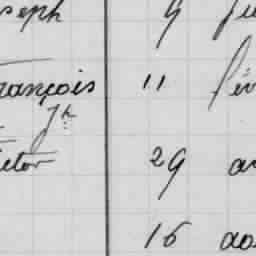 seph 4 ju
rançois 11 fév
Jh
ictor 29 av
16 aoû